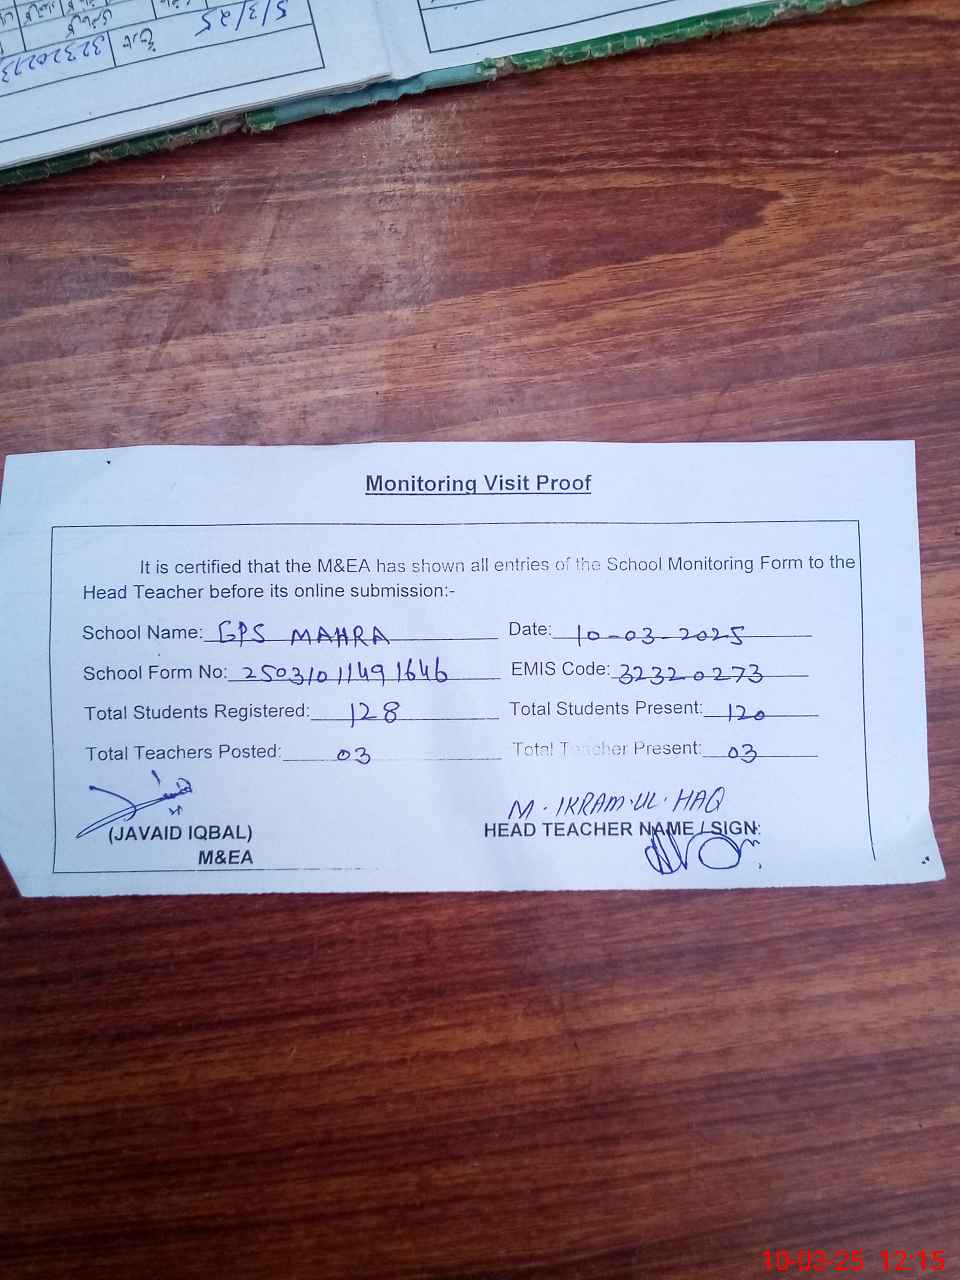 5/3/25
تاریخ
32320273
Monitoring Visit Proof
It is certified that the M&EA has shown all entries of the School Monitoring Form to the
Head Teacher before its online submission:-
School Name: GPS MAHRA Date: 10-03-2025
School Form No: 2503101149 1646 EMIS Code: 32320273
Total Students Registered: 128 Total Students Present: 120
Total Teachers Posted: 03 Total Teacher Present: 03
M. IKRAM.UL.HAQ
(JAVAID IQBAL) HEAD TEACHER NAME / SIGN:
M&EA
10-03-25 12:15